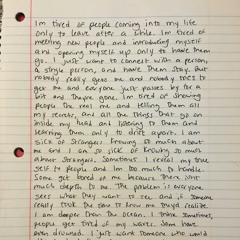 Im tired of people coming into my life
only to leave after a while. Im tired of
meeting new people and introducing myself
and opening myself up only to have them
go. I just want to connect with a person,
a single person, and have them stay. But
nobody really gives me and nobody tries to
get me and everyone just passes by for a
bit and theyre gone. Im tired of showing
people the real me and telling them all
my secrets, and all the things that go on
inside my head and listening to them and
learning them only to drift apart. I am
sick of strangers knowing so much about
me and I am so sick of knowing so much
about strangers. Sometimes I reveal my true
self to people and Im too much to handle.
Some get bored of me because there isnt
much depth to me. The problem is everyone
sees what they want to see and if someone
really took the time to know me they'd realize
I am deeper than the ocean. I think sometimes,
people get tired of my water. Some have
even drowned. I just want someone who would